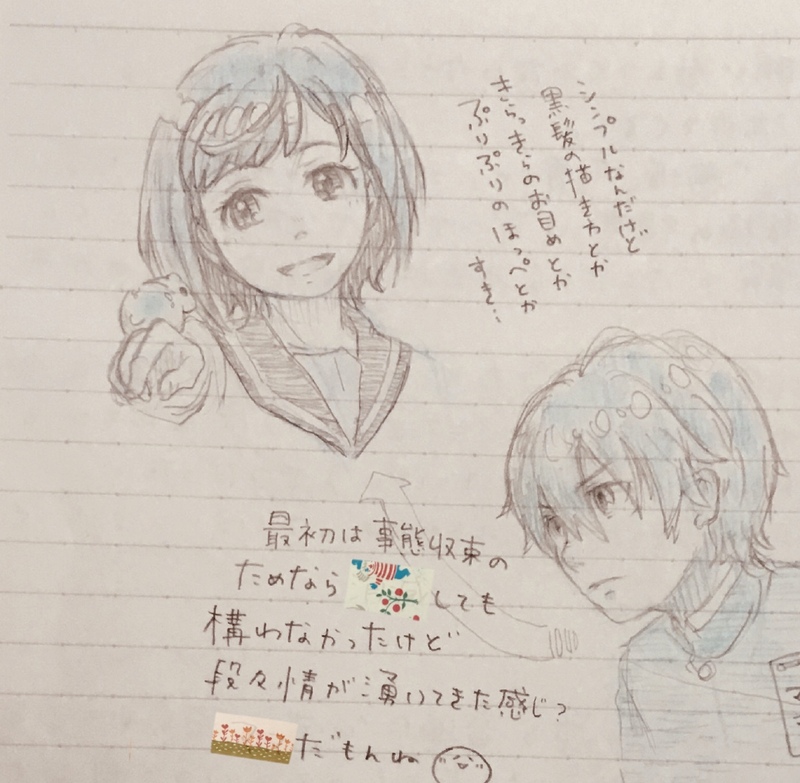 シンプルなんだけど
黒髪の描き方とか
きらっきらのお目めとか
ぷりぷりのほっぺとか
すき…
最初は事態収束の
ためなら
しても
構わなかったけど
段々情が湧いてきた感じ?
だもんね